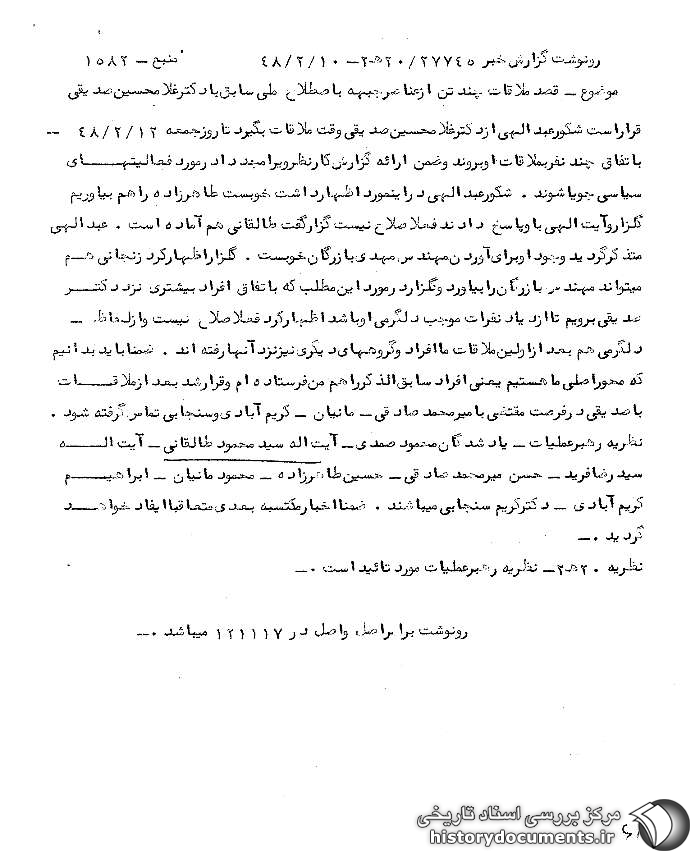 رونوشت گزارش خبر ۲۷۷۴۵/ ۲۰ه‍۲ – ۴۸/۲/۱۰ منبع – ۱۵۸۲
موضوع – قصد ملاقات چند تن ازعناصرجبهه باصطلاح ملی سابق بادکترغلامحسین صدیقی
قراراست شکورعبدالهی ازدکترغلامحسین صدیقی وقت ملاقات بگیرد تاروزجمعه ۴۸/۲/۱۲ –
باتفاق چند نفربملاقات اوبروند وضمن ارائه گزارش کارنظرویرامجددا درمورد فعالیتهـــای
سیاسی جویاشوند . شکورعبدالهی دراینمورد اظهارداشت خوبست طاهرزاده راهم بیاوریم
گلزاروآیت الهی باوپاسخ دادند فعلا صلاح نیست گزارگفت طالقانی هم آماده است . عبدالهی
متذکرگردید وجود اوبرای آوردن مهندس مهدی بازرگان خوبست . گلزاراظهارکرد زنجانی هـم
میتواند مهندس بازرگان رابیاورد وگلزارد رمورد این مطلب که باتفاق افراد بیشتری نزد دکتـــر
صدیقی برویم تاازدیاد نفرات موجب دلگرمی اوباشد اظهارکرد فعلا صلاح نیست وازلحاظ –
دلگرمی هم بعد ازاولین ملاقات ماافراد وگروههای دیگری نیزنزد آنهارفته اند . ضمنا باید بدانیم
که محوراصلی ما هستیم یعنی افراد سابق الذکرراهم من فرستاده ام وقرارشد بعد ازملاقـــات
با صدیقی درفرصت مقتضی با میرمحمد صادقی – مانیان – کریم آبادی وسنجابی تماس گرفته شود .
نظریه رهبرعملیات – یاد شدگان محمود صمدی – آیت اله سید محمود طالقانی – آیت الـــه
سید رضا فرید – حسن میرمحمد صادقی – حسین طاهرزاده – محمود مانیان – ابراهیـــم
کریم آبادی – دکترکریم سنجابی میباشند . ضمنا اخبارمکتسبه بعدی متعاقبا ایفاد خواهـــد
گردید ۰ –
نظریه ۲۰ه‍۲ – نظریه رهبرعملیات مورد تائید است ۰ –
رونوشت برابراصل واصل در ۱۲۱۱۱۷ میباشد ۰ –
مرکز بررسی اسناد تاریخی
historydocuments.ir